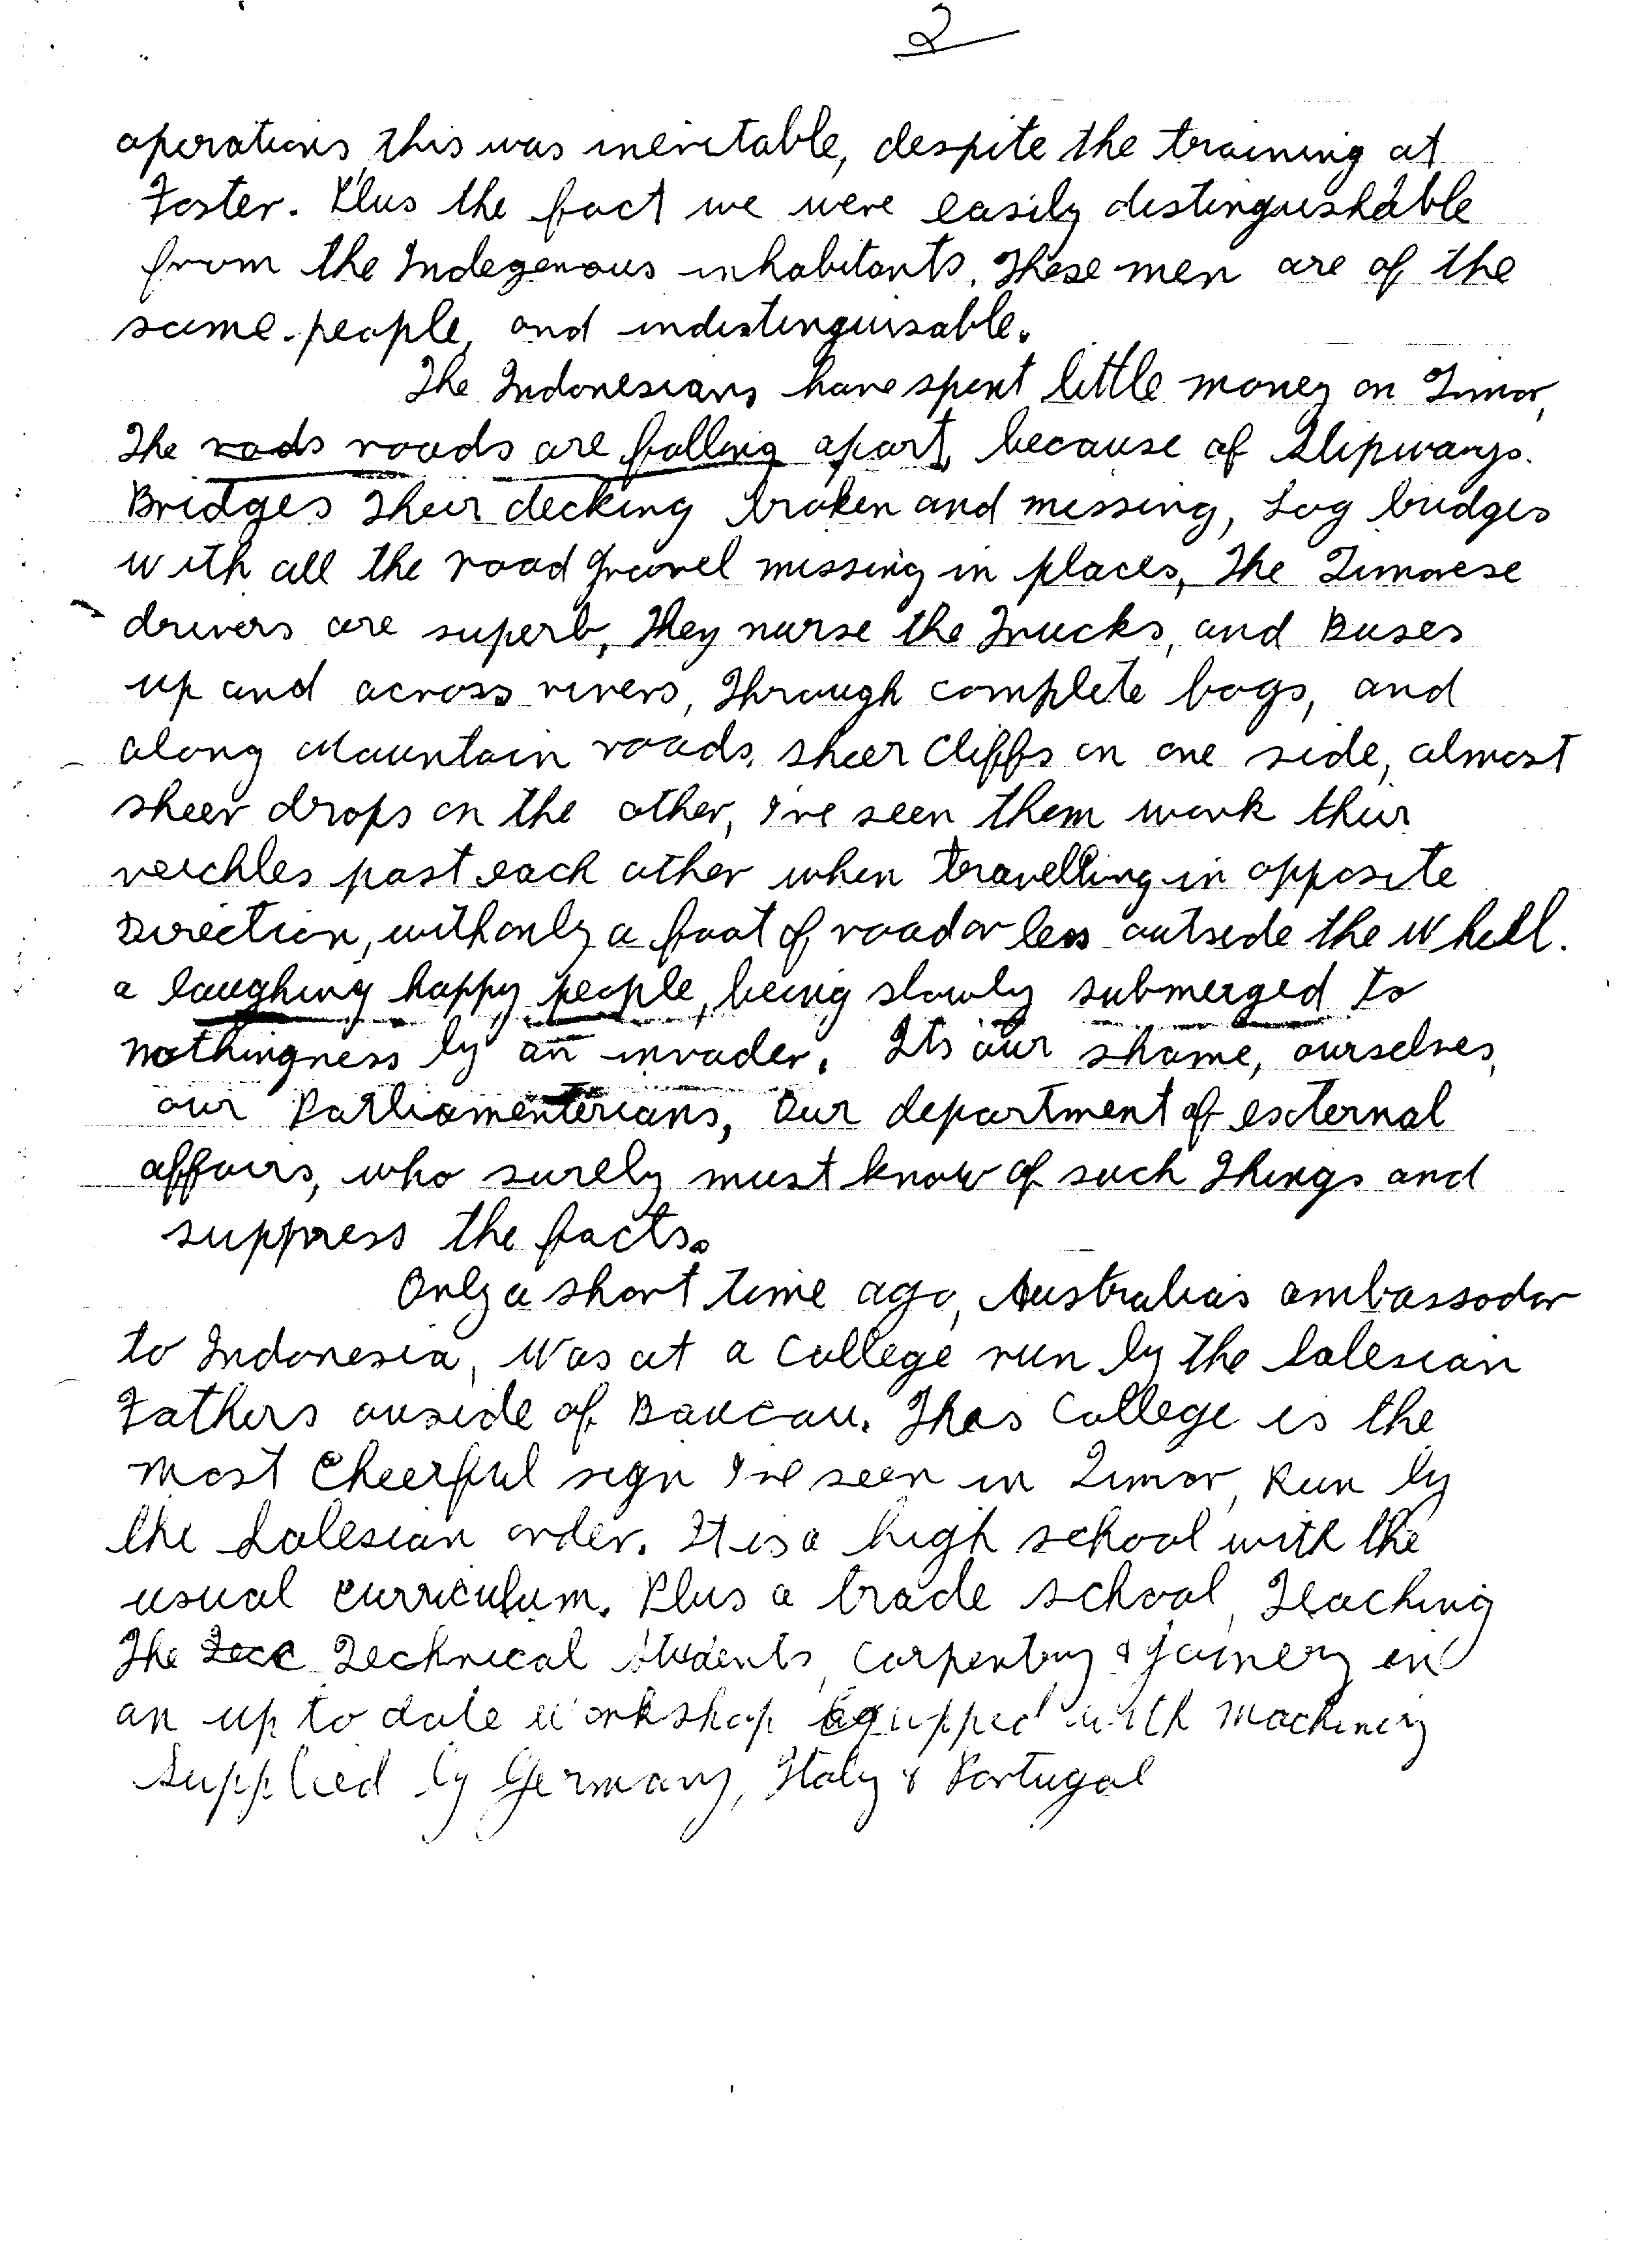 2
operations, this was inevitable, despite the training at
Foster. Plus the fact we were easily distinguishable
from the Indegenous inhabitants. These men are of the
same people, and indistinguisable.
The Indonesians have spent little money on Timor,
The rods roads are falling apart, because of Slipways.
Bridges Their decking broken and missing, Log bridges
with all the road gravel missing in places, The Timorese
drivers are superb, They nurse the Trucks, and Buses
up and across rivers, Through complete bogs, and
along Mountain roads, sheer Cliffs on one side, almost
sheer drops on the other, I've seen them work their
veichles past each other when travelling in opposite
Direction, with only a foot of road or less outside the Wheel.
a laughing happy people, being slowly submerged to
nothingness by an invader. Its our shame, ourselves,
our Parliamenterians, Our department of external
affairs, who surely must know of such Things and
suppress the facts.
Only a short Time ago, Australias ambassador
to Indonesia, Was at a College run by The Salesian
Fathers ouside of Baucau. This College is the
most Cheerful sign I've seen in Timor, Run by
the Salesian order. It is a high school with the
usual curriculum. Plus a trade school, Teaching
The Tecc Technical Students, Carpentry & Joinery in
an up to date Workshop Equipped with Machinery
Supplied by Germany, Italy & Portugal